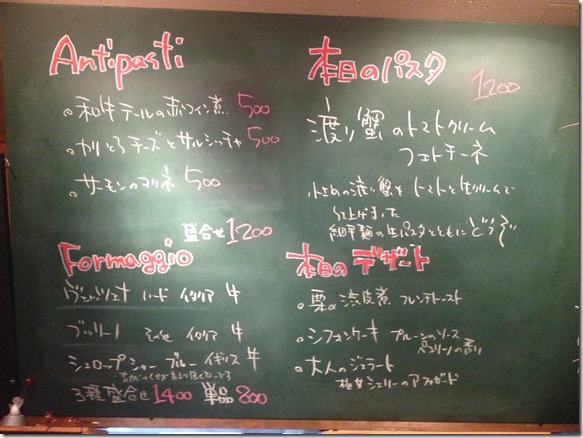 Antipasti
和牛テールの赤ワイン煮 500
カリとろチーズとサルシッチャ 500
サーモンのマリネ 500
盛合せ 1200
Formaggio
ハード イタリア 牛
イタリア 牛
シュロップシャーブルー イギリス 牛
3種盛合せ 1400 単品 800
本日のパスタ
1200
渡り蟹のトマトクリーム
フェトチーネ
小さめの渡り蟹をトマトと生クリームで
仕上げました
細平麺の生パスタとともにどうぞ
本日のデザート
栗の渋皮煮 フレンチトースト
シフォンケーキ プルーンのソース
の香り
大人のジェラート
極甘シェリーのアフォガード